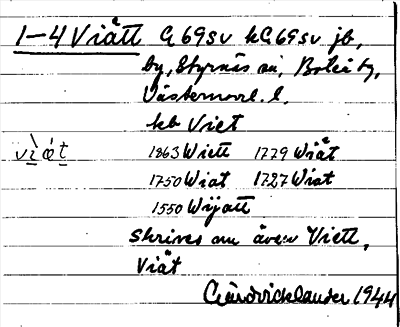 1–4 Viätt G 69 sv kC 69 sv jb,
by, Styrnäs sn, Boteå tg,
Västernorrl. l.
kb Viet
1863 Wiett 1779 Wiät
1750 Wiat 1727 Wiat
1550 Wijatt
skrives nu även Viett,
Viät
Gärdvicklander 1944